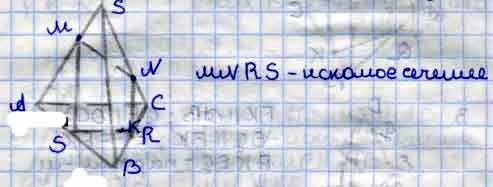 S
M
N
MNRS - искомое сечение
A
C
K
R
S
B